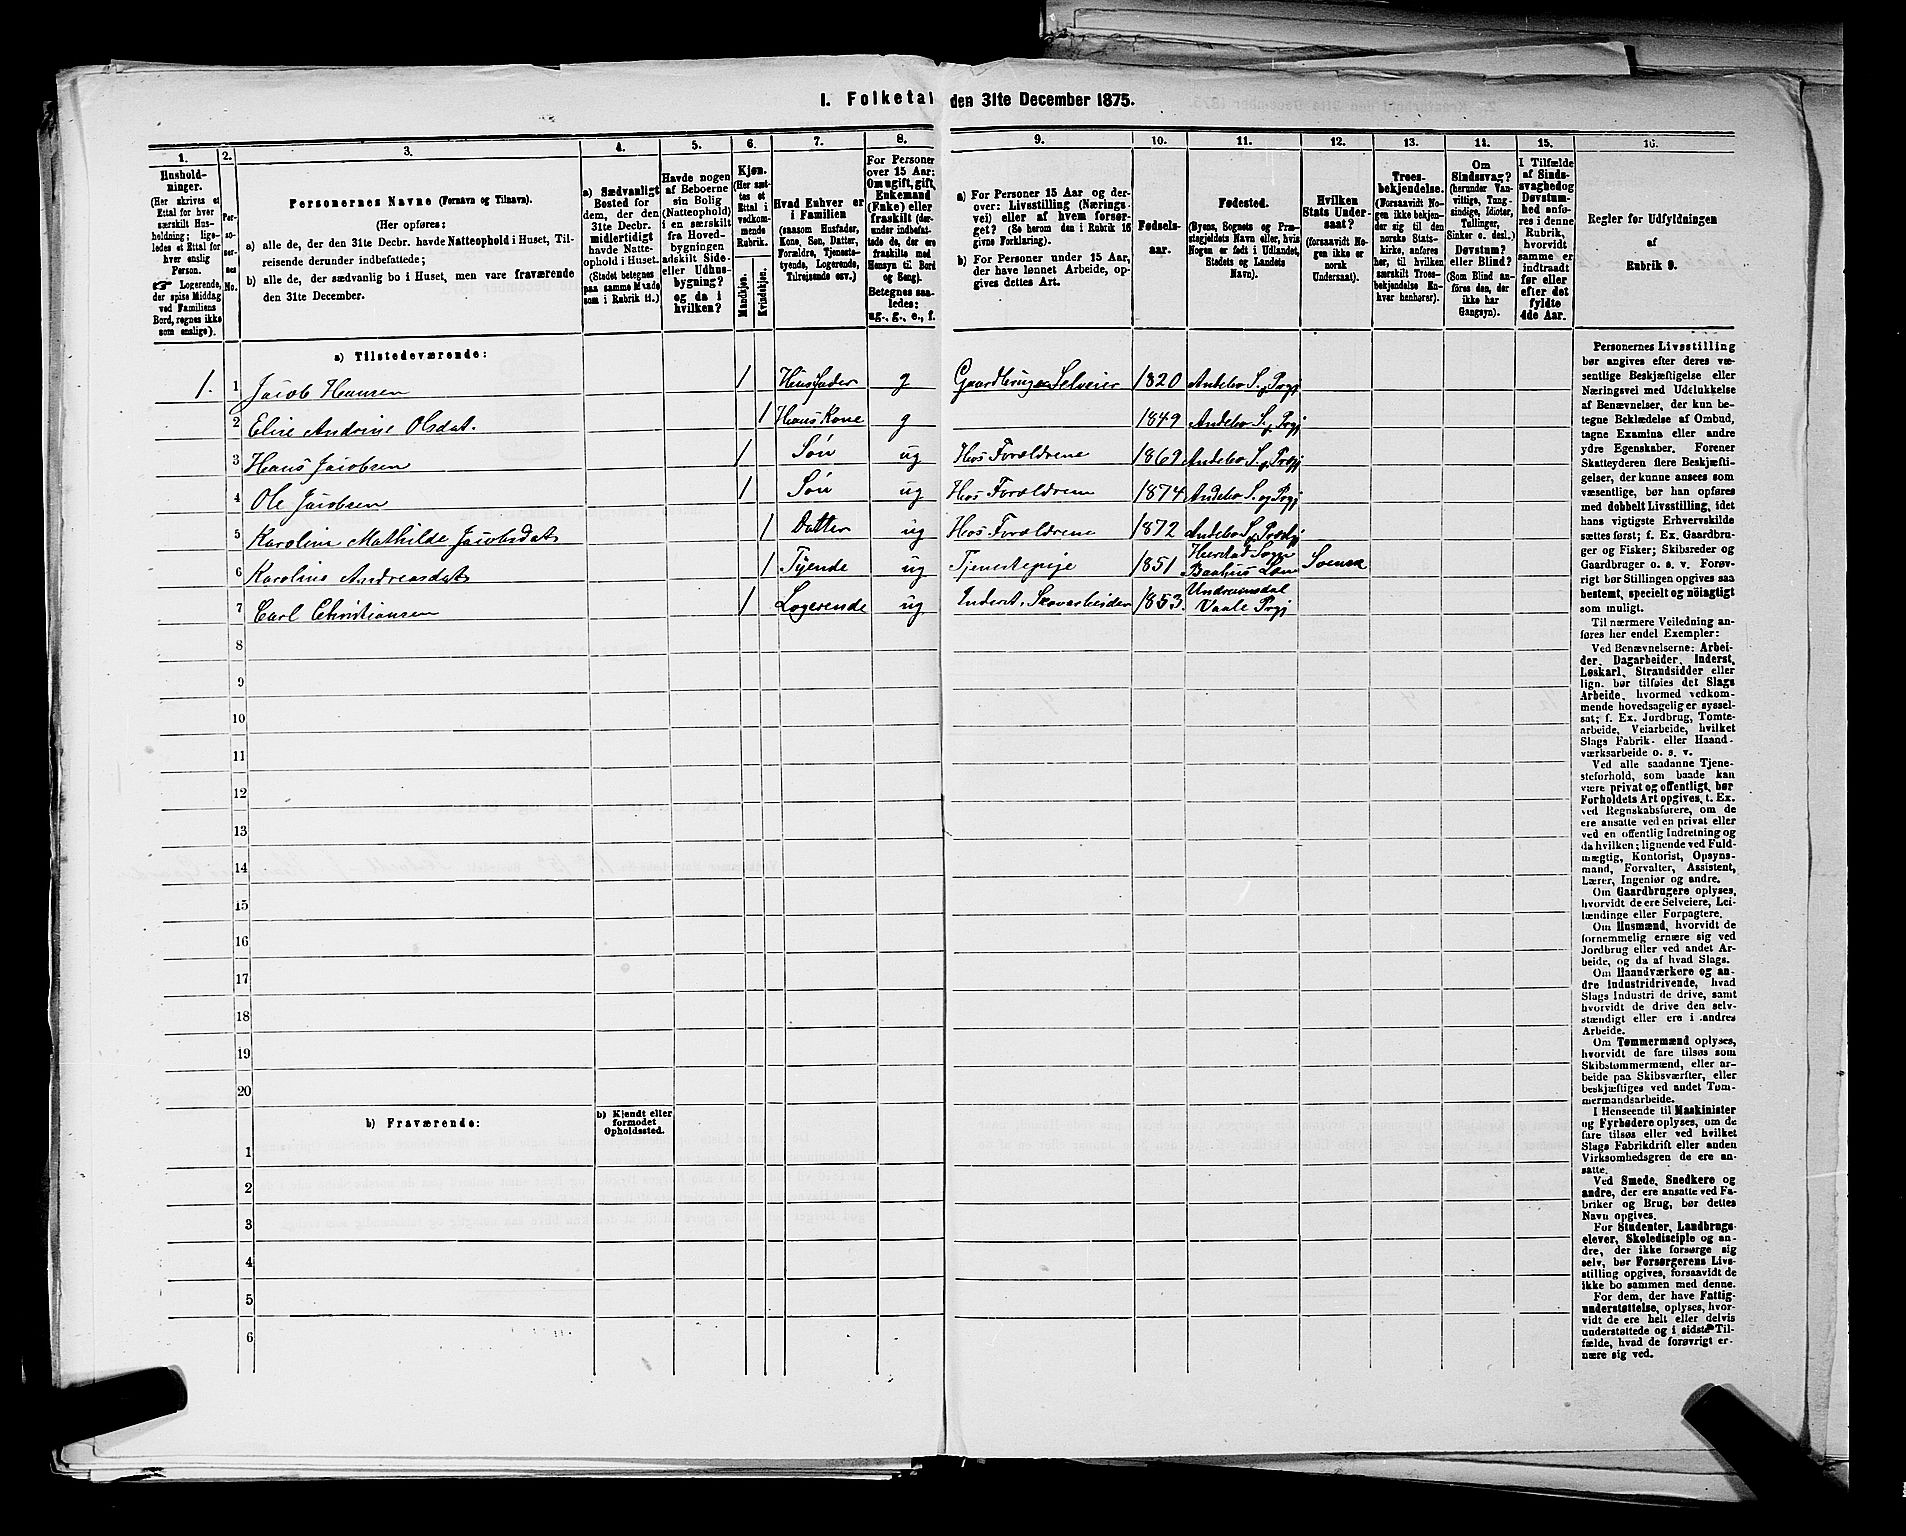 I. Folketal den 31te December 1875.
1. 2. 3. 4. 5. 6. 7. 8. 9. 10. 11. 12. 13. 14. 15. 16.
Husholdninger.
(Her skrives et
Ettal for hver
særskilt Husholdning; ligeledes
et Ettal for
hver enslig
Person.
☞ Logerende,
der spise Middag
ved Familiens
Bord, regnes ikke
som enslige).
Personernes No.
Personernes Navne (Fornavn og Tilnavn).
(Her opføres:
a) alle de, der den 31te Decbr. havde Natteophold i Huset, Tilreisende
derunder indbefattede;
b) alle de, der sædvanlig bo i Huset, men vare fraværende
den 31te December.
a) Sædvanligt
Bosted for
dem, der den
31te Decbr.
midlertidigt
havde Natteophold
i Huset.
(Stedet betegnes
paa samme Maade
som i Rubrik 11.)
Havde nogen
af Beboerne
sin Bolig
(Natteophold)
i en særskilt
fra Hovedbygningen
adskilt Side-
eller Udhusbygning?
og da i
hvilken?
Kjøn.
(Her sættes
et
Ettal i
vedkommende
Rubrik.
Mandkjøn.
Kvindekjøn.
Hvad Enhver er
i Familien
(saasom Husfader,
Kone, Søn, Datter,
Forældre, Tjenestetyende,
Logerende,
Tilreisende osv.)
For Personer
over 15 Aar:
Om ugift, gift,
Enkemand
(Enke) eller
fraskilt (derunder
indbefattede
de, der ere
fraskilte med
Hensyn til Bord
og Seng).
Betegnes saaledes:
ug., g., e., f.
a) For Personer 15 Aar og derover:
Livsstilling (Næringsvei)
eller af hvem forsørget?
(Se herom den i Rubrik 16
givne Forklaring).
b) For Personer under 15 Aar,
der have lønnet Arbeide, opgives
dettes Art.
Fødselsaar.
Fødested.
(Byens, Sognets og Præstegjeldets
Navn eller, hvis
Nogen er født i Udlandet,
Stedets og Landets
Navn).
Hvilken
Stats Undersaat?
(forsaavidt Nogen
ikke er
norsk
Undersaat).
Troesbekjendelse.
(Forsaavidt Nogen
ikke bekjender
sig til den
norske Statskirke,
anføres
her, til hvilken
særskilt Troesbekjendelse
Enhver
henhører).
Om
Sindssvag?
(herunder Vanvittige,
Tungsindige,
Idioter,
Tullinger,
Sinker o. desl.)
Døvstum?
eller Blind?
(Som Blinde anføres
den, der
ikke har
Gangsyn).
I Tilfælde
af Sindssvaghed
og
Døvstumhed
anføres
i denne
Rubrik,
hvorvidt
samme er
indtraadt
før eller
efter det
fyldte
4de Aar.
Regler for Udfyldningen
af
Rubrik 9.
a) Tilstedeværende:
1. 1 Jacob Hansen 1 Husfader g Gaardbruger Selveier 1820 Andebo S. og Prgj
2 Elise Andrine Olsdat. 1 Hans Kone g 1849 Andebo S. og Prgj
3 Hans Jacobsen 1 Søn ug Hos Forældrene 1869 Andebo S. og Prgj
4 Ole Jacobsen 1 Søn ug Hos Forældrene 1874 Andebo S. og Prgj
5 Karoline Mathilde Jacobsdat 1 Datter ug Hos Forældrene 1872 Andebo S. Prestgj
6 Karoline Andreasdat 1 Tyende ug Tjenestepige 1851 Sogn Baahus Len Svensk
7 Carl Christiansen 1 Logerende ug Inderst, Skovarbeider 1853 Undrumsdal Vaale Prgj
8
9
10
11
12
13
14
15
16
17
18
19
20
b) Fraværende:
b) Kjendt eller
formodet
Opholdssted.
1
2
3
4
5
6
Personernes Livsstilling
bør angives efter deres væsentlige
Beskjæftigelse eller
Næringsvei med Udelukkelse
af Benævnelser, der kun betegne
Beklædelse af Ombud,
tagne Examina eller andre
ydre Egenskaber. Forener
Skatteyderen flere Beskjæftigelser,
der kunne ansees som
væsentlige, bør han opføres
med dobbelt Livsstilling, idet
hans vigtigste Erhvervskilde
sættes først; f. Ex. Gaardbruger
og Fisker; Skibsreder og
Gaardbruger o. s. v. Forøvrigt
bør Stillingen opgives saa
bestemt, specielt og nöiagtigt
som muligt.
Til nærmere Veiledning anføres
her endel Exempler:
Ved Benævnelserne: Arbeider,
Dagarbeider, Inderst,
Løskarl, Strandsidder eller
lign. bør tilføies det Slags
Arbeide, hvormed vedkommende
hovedsagelig er sysselsat;
f. Ex. Jordbrug, Tomtearbeide,
Veiarbeide, hvilket
Slags Fabrik- eller Haandværksarbeide
o. s. v.
Ved alle saadanne Tjenesteforhold,
som baade kan
være privat og offentligt, bør
Forholdets Art opgives, f. Ex.
ved Regnskabsførere, om de
ere ansatte ved en privat eller
ved en offentlig Indretning og
da hvilken; lignende ved Fuldmægtig,
Kontorist, Opsynsmand,
Forvalter, Assistent,
Lærer, Ingeniør og andre.
Om Gaardbrugere oplyses,
hvorvidt de ere Selveiere, Leilændinge
eller Forpagtere.
Om Husmænd, hvorvidt de
fornemmelig ernære sig ved
Jordbrug eller ved andet Arbeide,
og da af hvad Slags.
Om Haandværkere og andre
Industridrivende, hvad
Slags Industri de drive, samt
hvorvidt de drive den selvstændigt
eller ere i andres
Arbeide.
Om Tømmermænd oplyses,
hvorvidt de fare tilsøs som
Skibstømmermænd, eller arbeide
paa Skibsværfter, eller
beskjæftiges ved andet Tømmermandsarbeide.
I Henseende til Maskinister
og Fyrbødere oplyses, om de
fare tilsøs eller ved hvilket
Slags Fabrikdrift eller anden
Virksomhedsgren de ere ansatte.
Ved Smede, Snedkere og
andre, der ere ansatte ved Fabriker
og Brug, bør dettes
Navn opgives.
For Studenter, Landbrugselever,
Skoledisciple og andre,
der ikke forsørge sig
selv, bør Forsørgerens Livsstilling
opgives, forsaavidt de
ikke bo sammen med denne.
For dem, der have Fattigunderstøttelse,
oplyses, hvorvidt
de ere helt eller delvis
understøttede og i sidste Tilfælde,
hvad de forøvrigt ernære
sig ved.